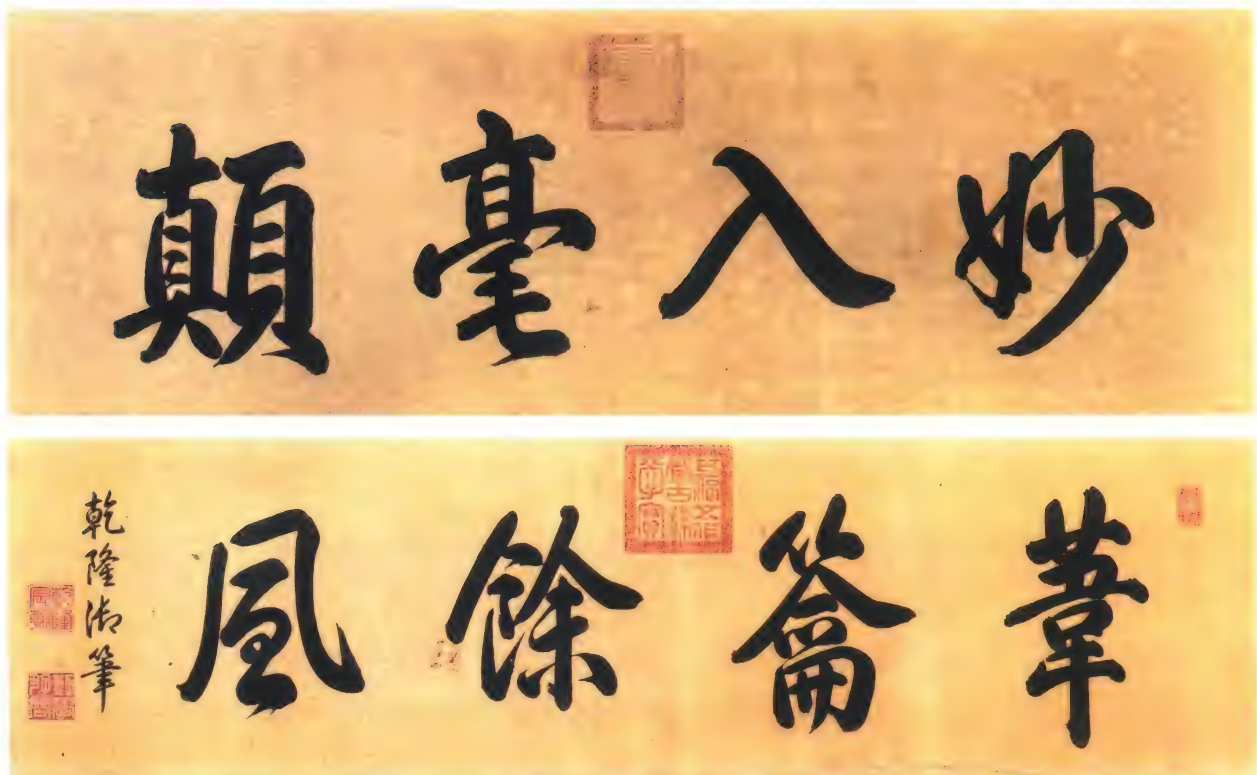 妙入毫顛
葦籥餘風
乾隆御筆